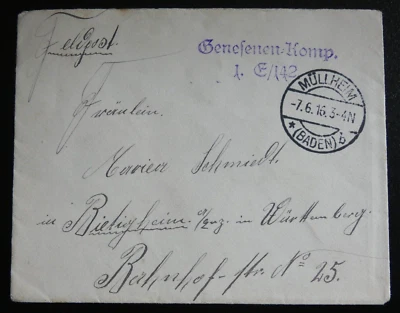 Feldpost
Genesenen-Komp.
1. E/142
MÜLLHEIM
-7.6.16.3-4N
* (BADEN) b
Fräulein
Maria Schmiedt.
in Bietigheim a/Enz in Württemberg.
Bahnhof-str. No 25.